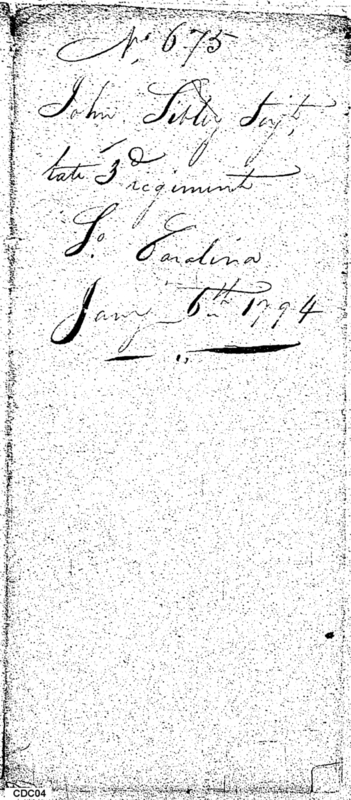 No. 675
John Sibley Serjt,
late 3d regiment
So. Carolina
Jany 6th 1794
CDC04